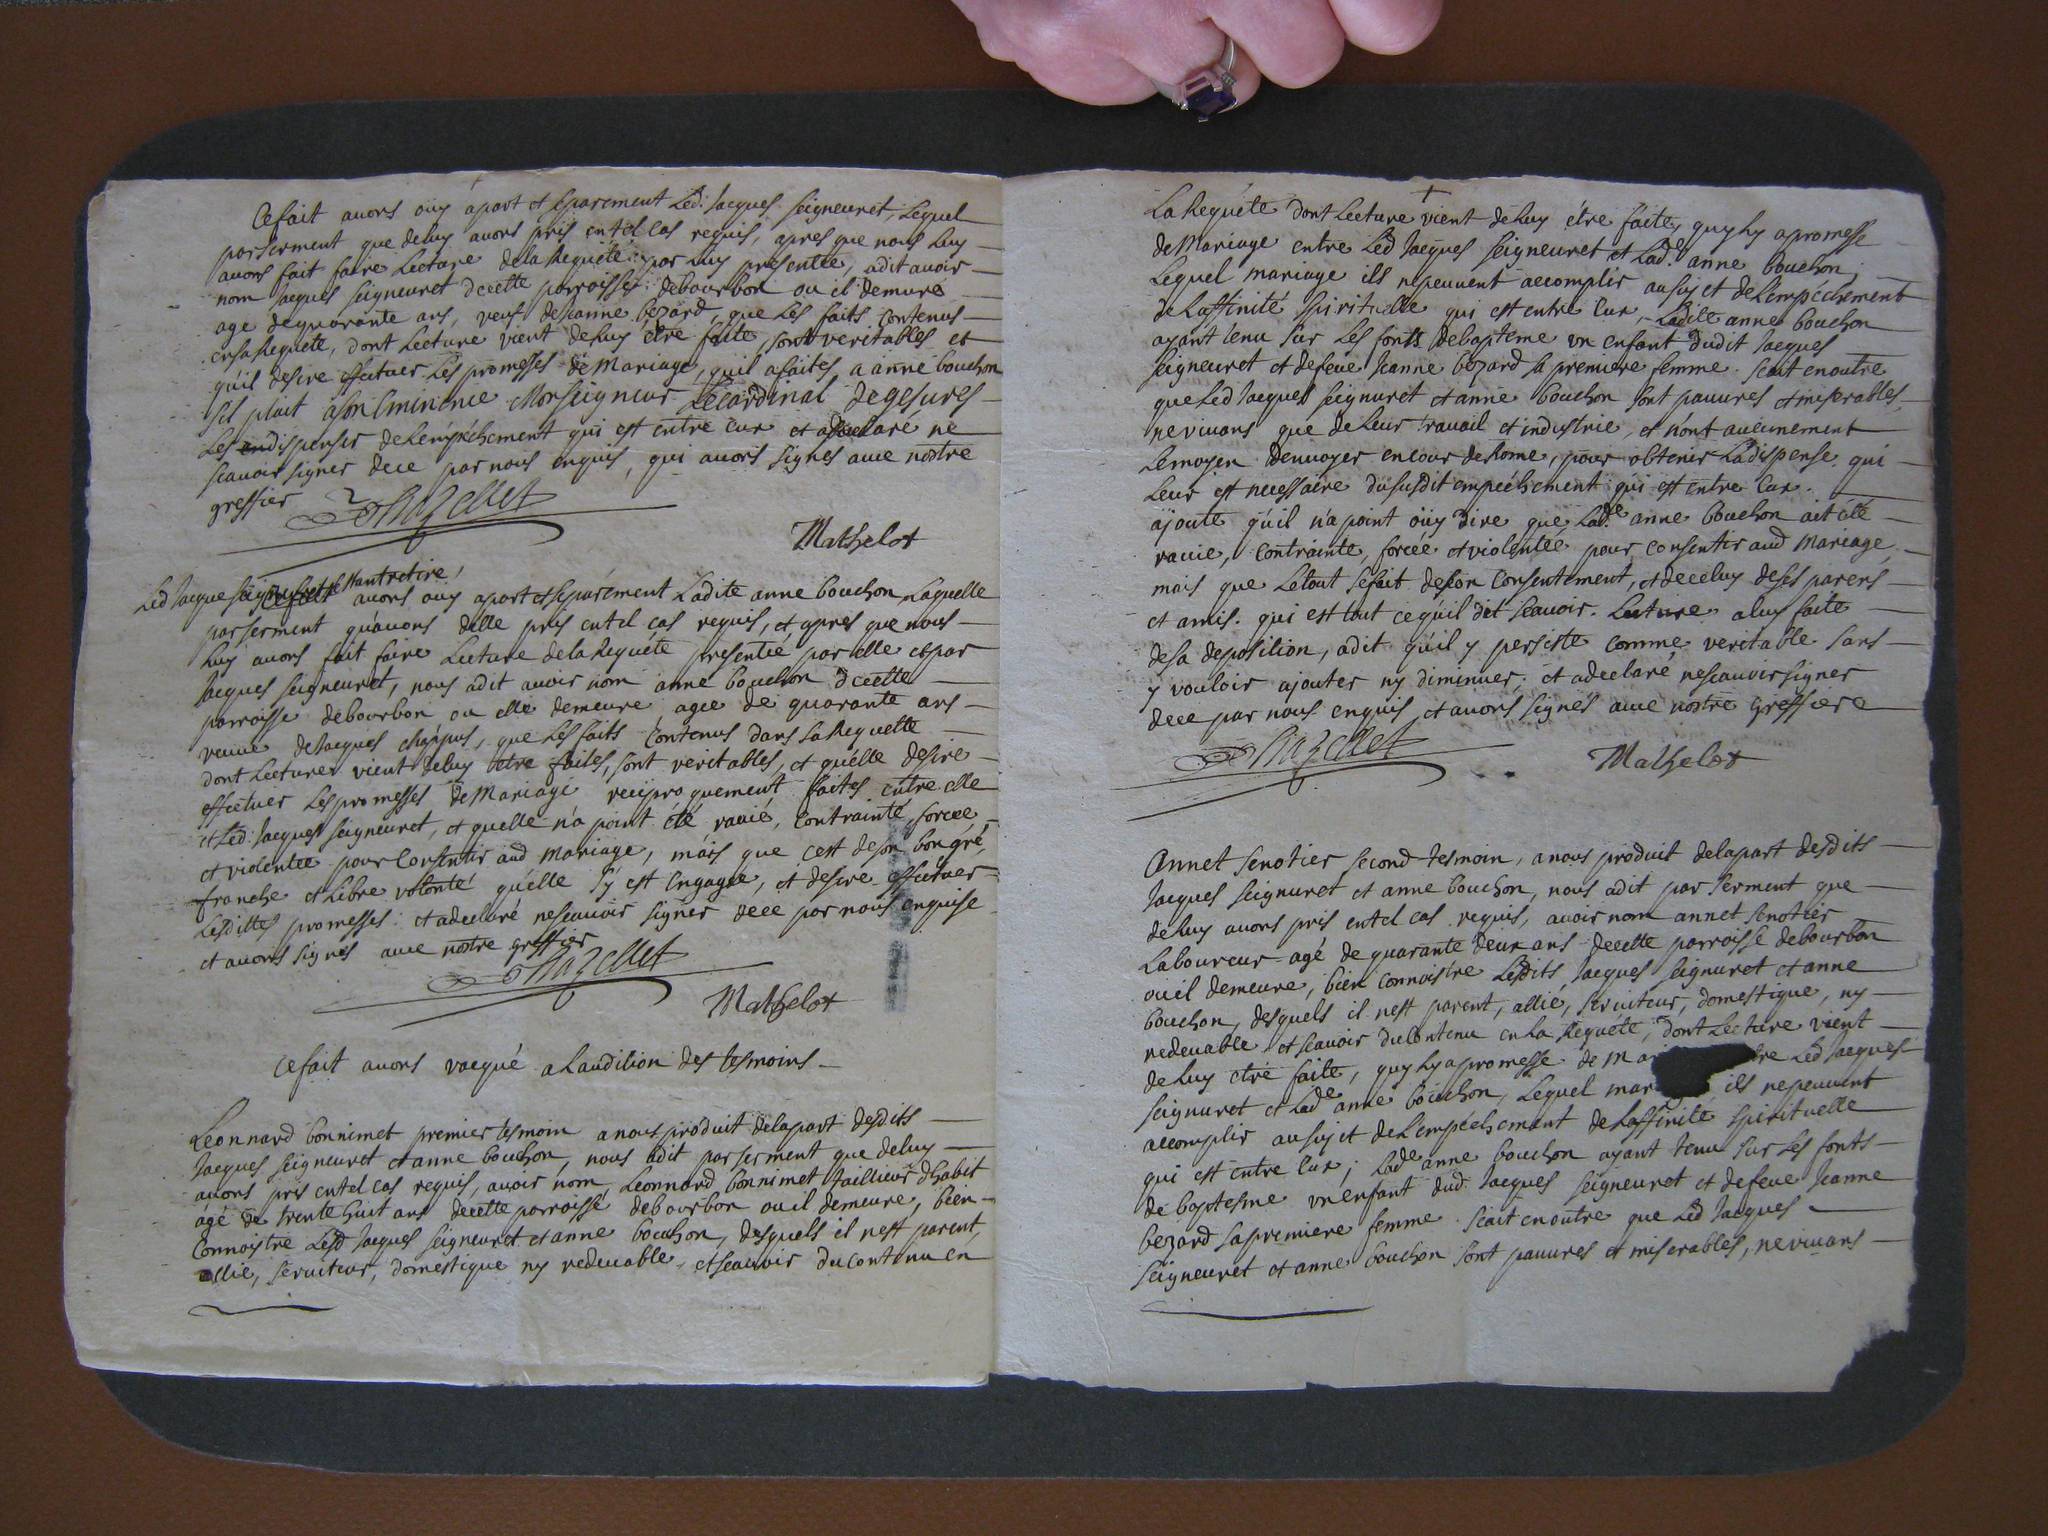 Cefait auons oüy apart et separement Led. Jacques Seigneuret, Lequel
par serment que deluy auons pris entel cas requis, apres que nous Luy
auons fait faire Lecture dela Requête par luy presentée, adit auoir
nom Jacques Seigneuret decette parroisse debourbon ou il demeure
agé dequarante ans, veuf deJeanne bezard, que Les faits contenus
ensa Requête, dont Lecture vient deluy être faite, sont veritables et
qu'il desire effectuer Les promesses de Mariage, qu'il a faites a anne bouchon
s'il plait a son Eminence Monseigneur Le Cardinal de gesures
Les dispenser del'empéchement qui est entre eux et a declaré ne
scauoir signer dece par nous enquis, qui auons signés auec nostre
greffier
Chazellet
Mathelot
Led Jacque Seigneuret s'éstant retiré,
auons oüy apart et separement Ladite anne bouchon Laquelle
par serment qu'auons delle pris entel cas requis, et apres que nous
Luy auons fait faire Lecture dela Requête presentée par elle et par
Jacques Seigneuret, nous adit auoir nom anne bouchon decette
parroisse debourbon ou elle demeure agée de quarante ans
veuue deJacques chappus, que Les faits contenus dans sa Requette
dont Lecture vient deluy être faites, sont veritables, et qu'elle desire
effectuer Les promesses de Mariage reciproquement faites entre elle
et Led. Jacques Seigneuret, et quelle n'a point été rauie, contrainte, forcée
et violentée pour Consentir aud Mariage, mais que c'est deson bon gré,
franche et Libre volonté qu'elle s'y est Engagée, et desire effectuer
Lesdittes promesses: et adeclaré nescauoir signer dece par nous enquise
et auons signés auec nostre greffier
Chazellet
Mathelot
Cefait auons vacqué a Laudition des tesmoins
Leonnard bonnimet premier tesmoin a nous produit delapart desdits
Jacques Seigneuret et anne bouchon, nous adit par serment que deluy
auons pris entel cas requis, auoir nom Leonnard bonnimet tailleur d'habit
âgé de trente huit ans decette parroisse debourbon ou il demeure, bien
Connoistre Lesd Jacques Seigneuret et anne bouchon, desquels il n'est parent,
allié, seruiteur, domestique ny redeuable, et scauoir du contenu en
La Requête dont Lecture vient deluy être faite, qu'il y a promesse
de Mariage entre Led Jacques Seigneuret et Lade. anne bouchon,
Lequel mariage ils nepeuuent accomplir au sujet de L'empéchement
de Laffinité Spirituelle qui est entre Eux, Ladite anne bouchon
ayant tenu sur Les fonts debapteme un enfant dudit Jacques
Seigneuret et defeue Jeanne bezard sa premiere femme. Scait en outre
que Led Jacques Seignuret et anne bouchon sont pauures et miserables,
ne viuans que de leur trauail et industrie, et n'ont aucunement
Lemoyen D'enuoyer encour deRome, pour obtenir Ladispense qui
Leur est necessaire du susdit empéchement qui est entre Eux.
ajoute qu'il n'a point oüy dire que Lade. anne bouchon ait été
rauie, contrainte, forcée et violentée pour consentir aud Mariage,
mais que Letout sefait deson Consentement, et deceluy deses parens
et amis. qui est tout cequ'il dit scauoir. Lecture a luy faite
desa deposition, adit qu'il y persiste comme veritable sans
y vouloir ajouter ny diminuer; et adeclaré nescauoir signer
dece par nous enquis et auons signés auec nostre Greffier
Chazellet
Mathelot
Annet Senotier second tesmoin, a nous produit delapart desdits
Jacques Seignuret et anne bouchon, nous adit par serment que
deluy auons pris entel cas requis, auoir nom annet Senotier
Laboureur agé de quarante deux ans decette parroisse debourbon
ou il demeure, bien connoistre Lesdits Jacques Seignuret et anne
bouchon, desquels il n'est parent, allié, seruiteur, domestique, ny
redeuable et scauoir du Contenu en La Requête, dont Lecture vient
deluy être faite, qu'il y a promesse de Mar tre Led Jacques
Seignuret et Lade anne bouchon, Lequel mar ils nepeuuent
accomplir au sujet deL'empéchement deLaffinité Spirituelle
qui est entre Eux; Lade anne bouchon ayant tenu sur Les fonts
de baptesme un enfant dud Jacques Seigneuret et defeue Jeanne
bezard sa premiere femme. Scait en outre que Led Jacques
Seigneuret et anne bouchon sont pauures et miserables, ne viuans